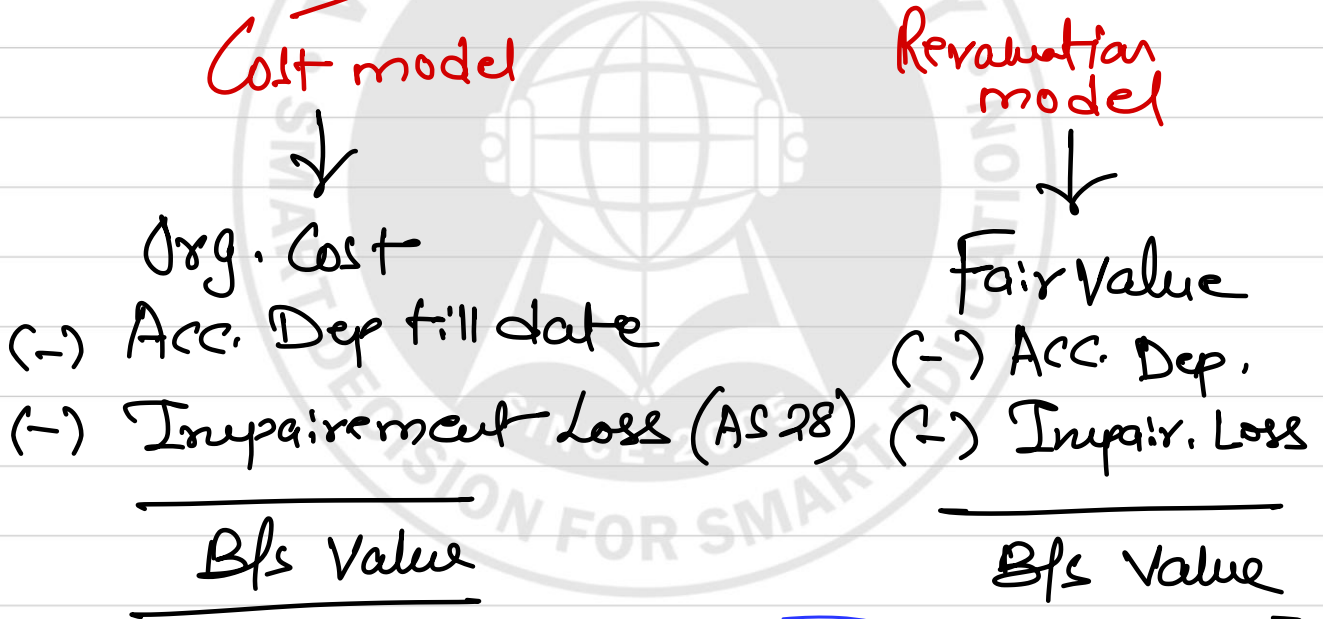 Cost model
Org. Cost
(-) Acc. Dep till date
(-) Impairement Loss (AS 28)
B/s Value
Revaluation
model
Fair Value
(-) Acc. Dep.
(-) Impair. Loss
B/s Value
SMART DECISION FOR SMART EDUCATION